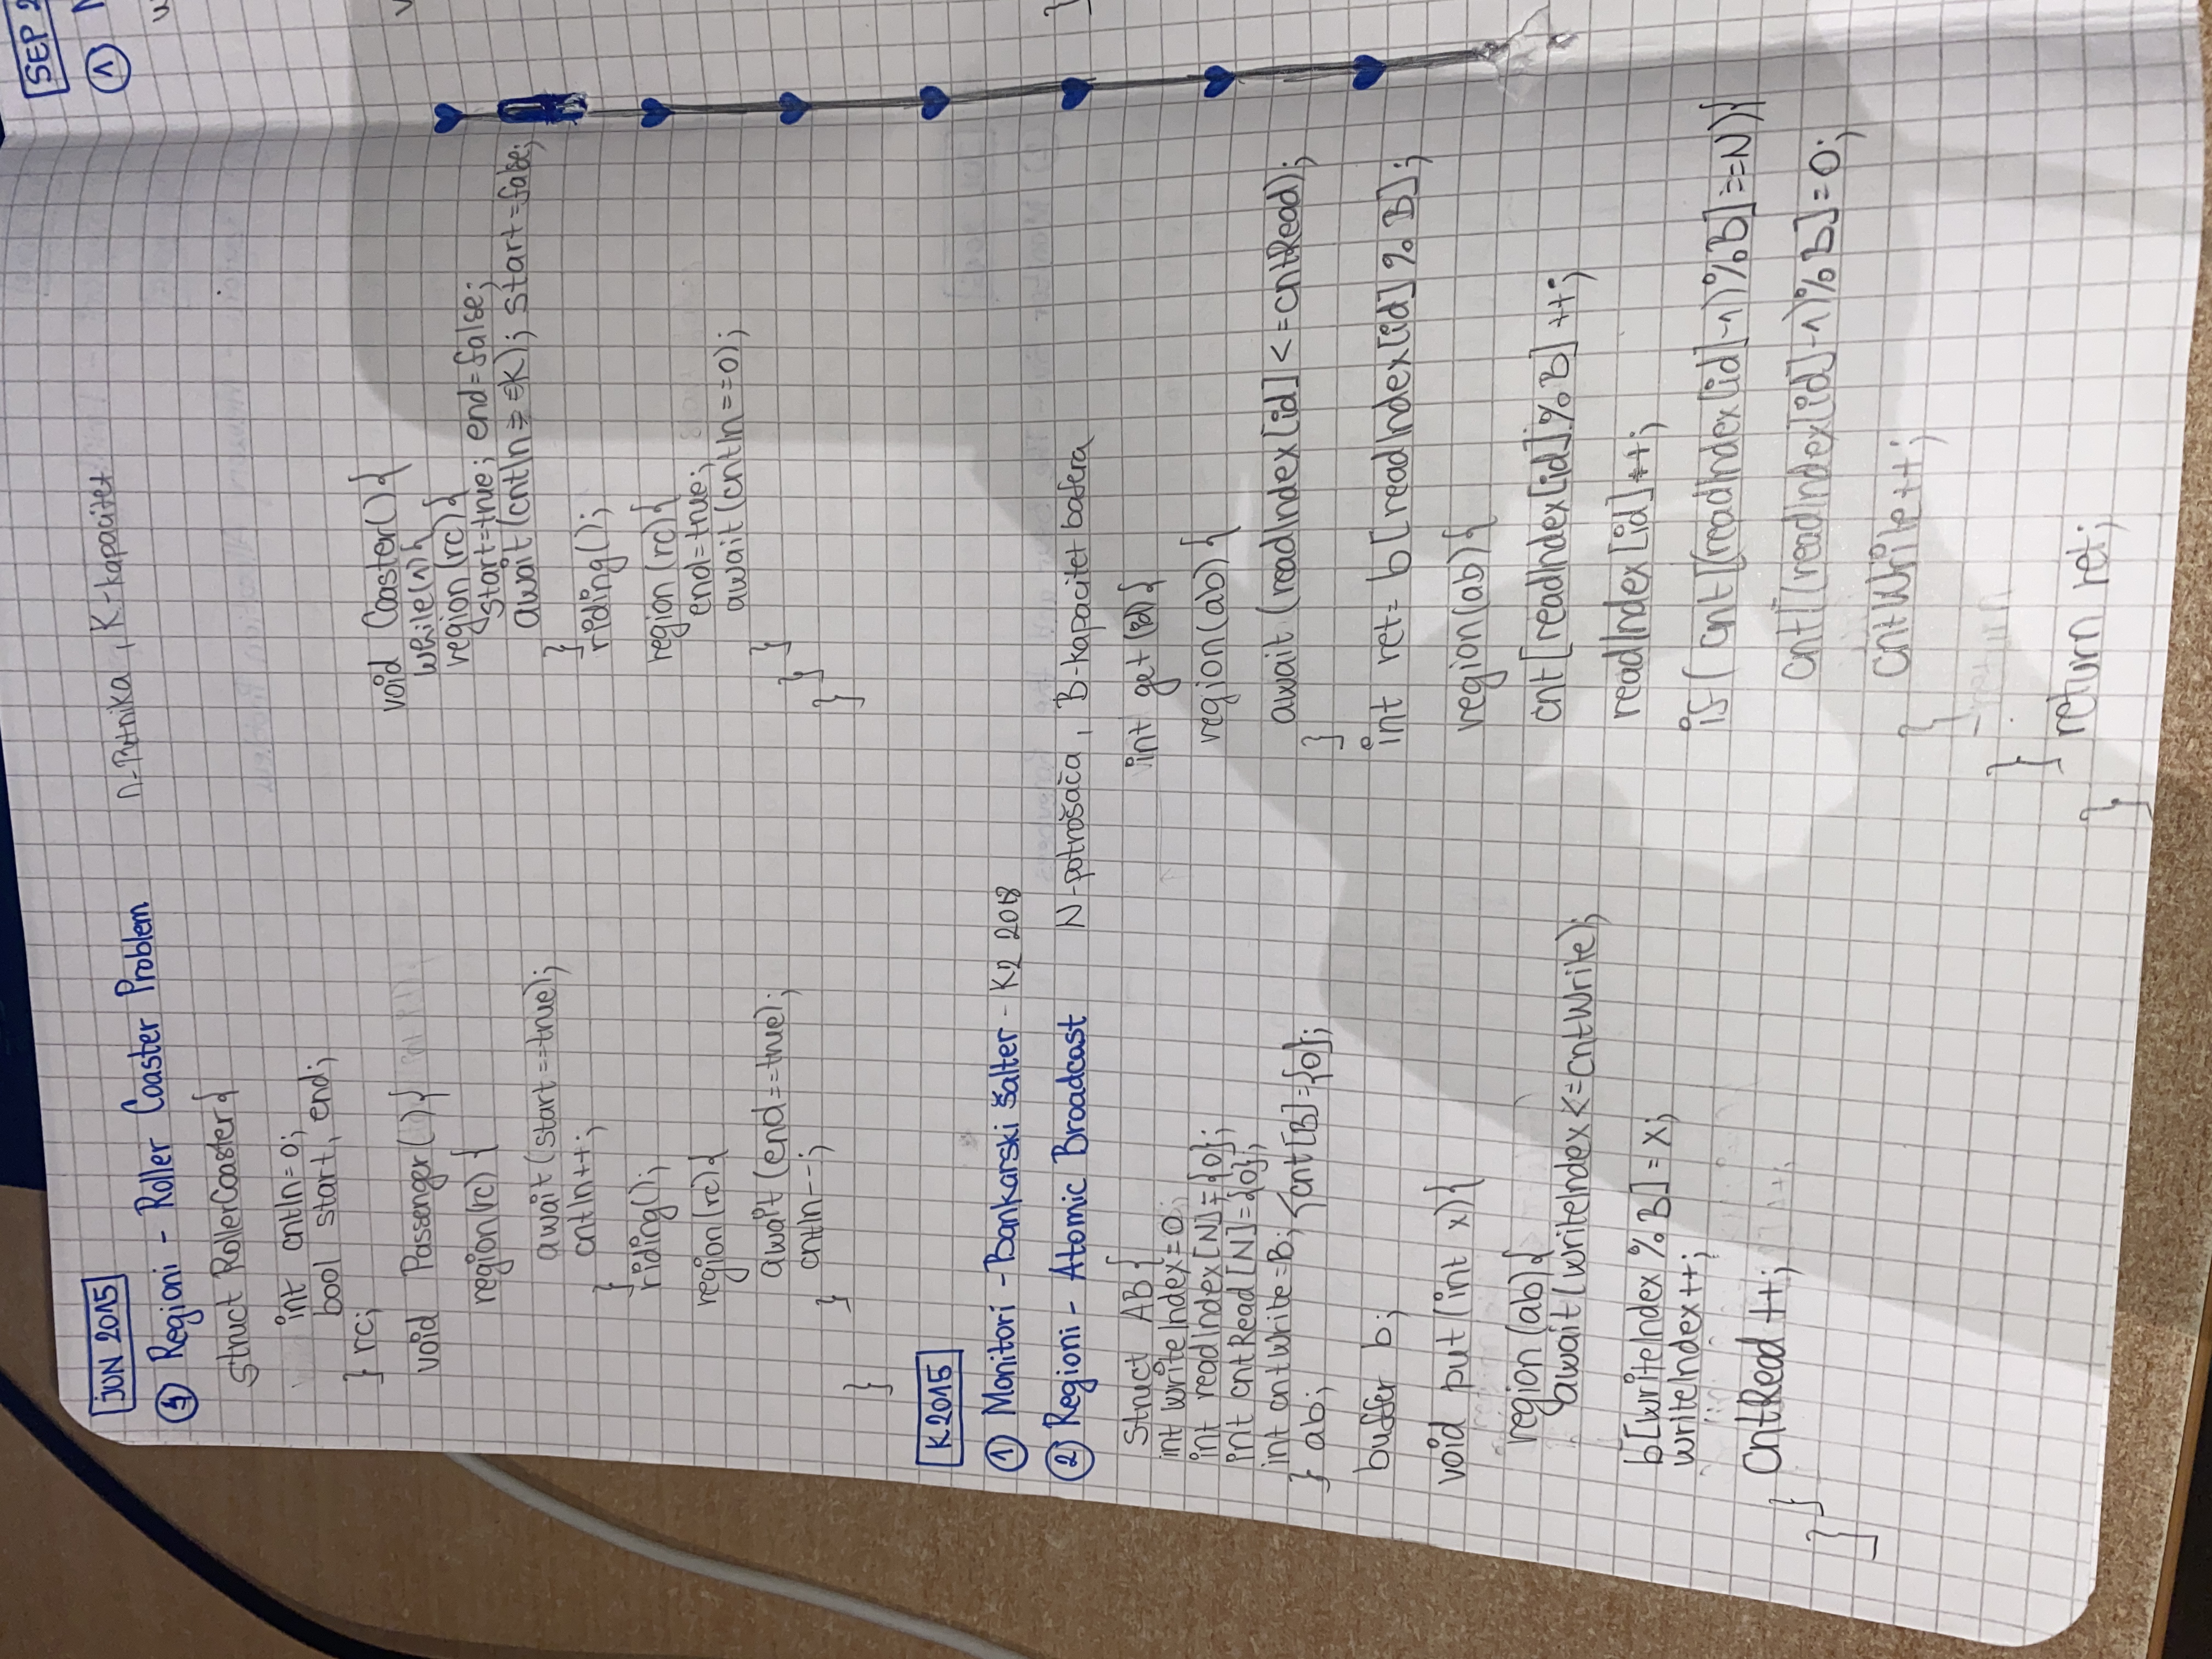 JUN 2015
④ Regioni - Roller Coaster Problem n-Putnika, K-kapacitet
struct RollerCoaster{
int cntIn=0;
bool start, end;
} rc;
void Passenger(){
region(rc) {
await(start==true);
cntIn++;
}
riding();
region(rc){
await(end==true);
cntIn--;
}
}
void Coaster(){
while(1){
region(rc){
start=true; end=false;
await(cntIn==K); start=false;
}
riding();
region(rc){
end=true;
await(cntIn==0);
}
}
}
K2015
① Monitori - Bankarski šalter - K2 2018
② Regioni - Atomic Broadcast N-potrošača, B-kapacitet bafera
struct AB{
int writeIndex=0;
int readIndex[N]={0};
int cntRead[N]={0};
int cntWrite=B; cnt[B]={0};
} ab;
buffer b;
void put(int x){
region(ab){
await(writeIndex<=cntWrite);
b[writeIndex%B]=x;
writeIndex++;
cntRead++;
}
}
int get(id){
region(ab){
await(readIndex[id]<=cntRead);
}
int ret= b[readIndex[id]%B];
region(ab){
cnt[readIndex[id]%B]++;
readIndex[id]++;
if(cnt[(readIndex[id]-1)%B]==N){
cnt[(readIndex[id]-1)%B]=0;
cntWrite++;
}
}
return ret;
}
SEP 2
①
}